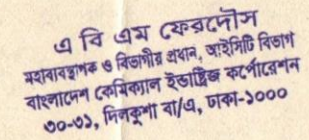 এ বি এম ফেরদৌস
মহাব্যবস্থাপক ও বিভাগীয় প্রধান, আইসিটি বিভাগ
বাংলাদেশ কেমিক্যাল ইন্ডাষ্ট্রিজ কর্পোরেশন
৩০-৩১, দিলকুশা বা/এ, ঢাকা-১০০০